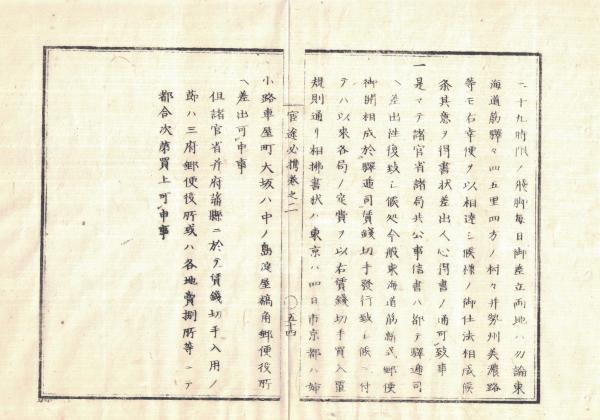 二十九時限ノ飛脚毎日御差立両地ハ勿論東
海道筋驛々四五里四方ノ村々并勢州美濃路
等モ右幸便ヲ以相達シ候様ノ御仕法相成候
条其意ヲ得書状差出人心得書ノ通可致事
一
是マテ諸官省諸局共公事信書ハ都テ驛逓司
ヘ差出往復致シ候処今般東海道筋新式郵便
御開相成於驛逓司賃錢切手發行致シ候ニ付
テハ以来各局ノ定費ヲ以右賃錢切手買入置
規則通リ相拂書状ハ東京ハ四日市京都ハ姉
官途必携巻之二
五十四
小路車屋町大坂ハ中ノ島淀屋橋角郵便役所
ヘ差出可申事
但諸官省并府藩縣ニ於テ賃錢切手入用ノ
節ハ三府郵便役所或ハ各地賣捌所等ニテ
都合次第買上可申事